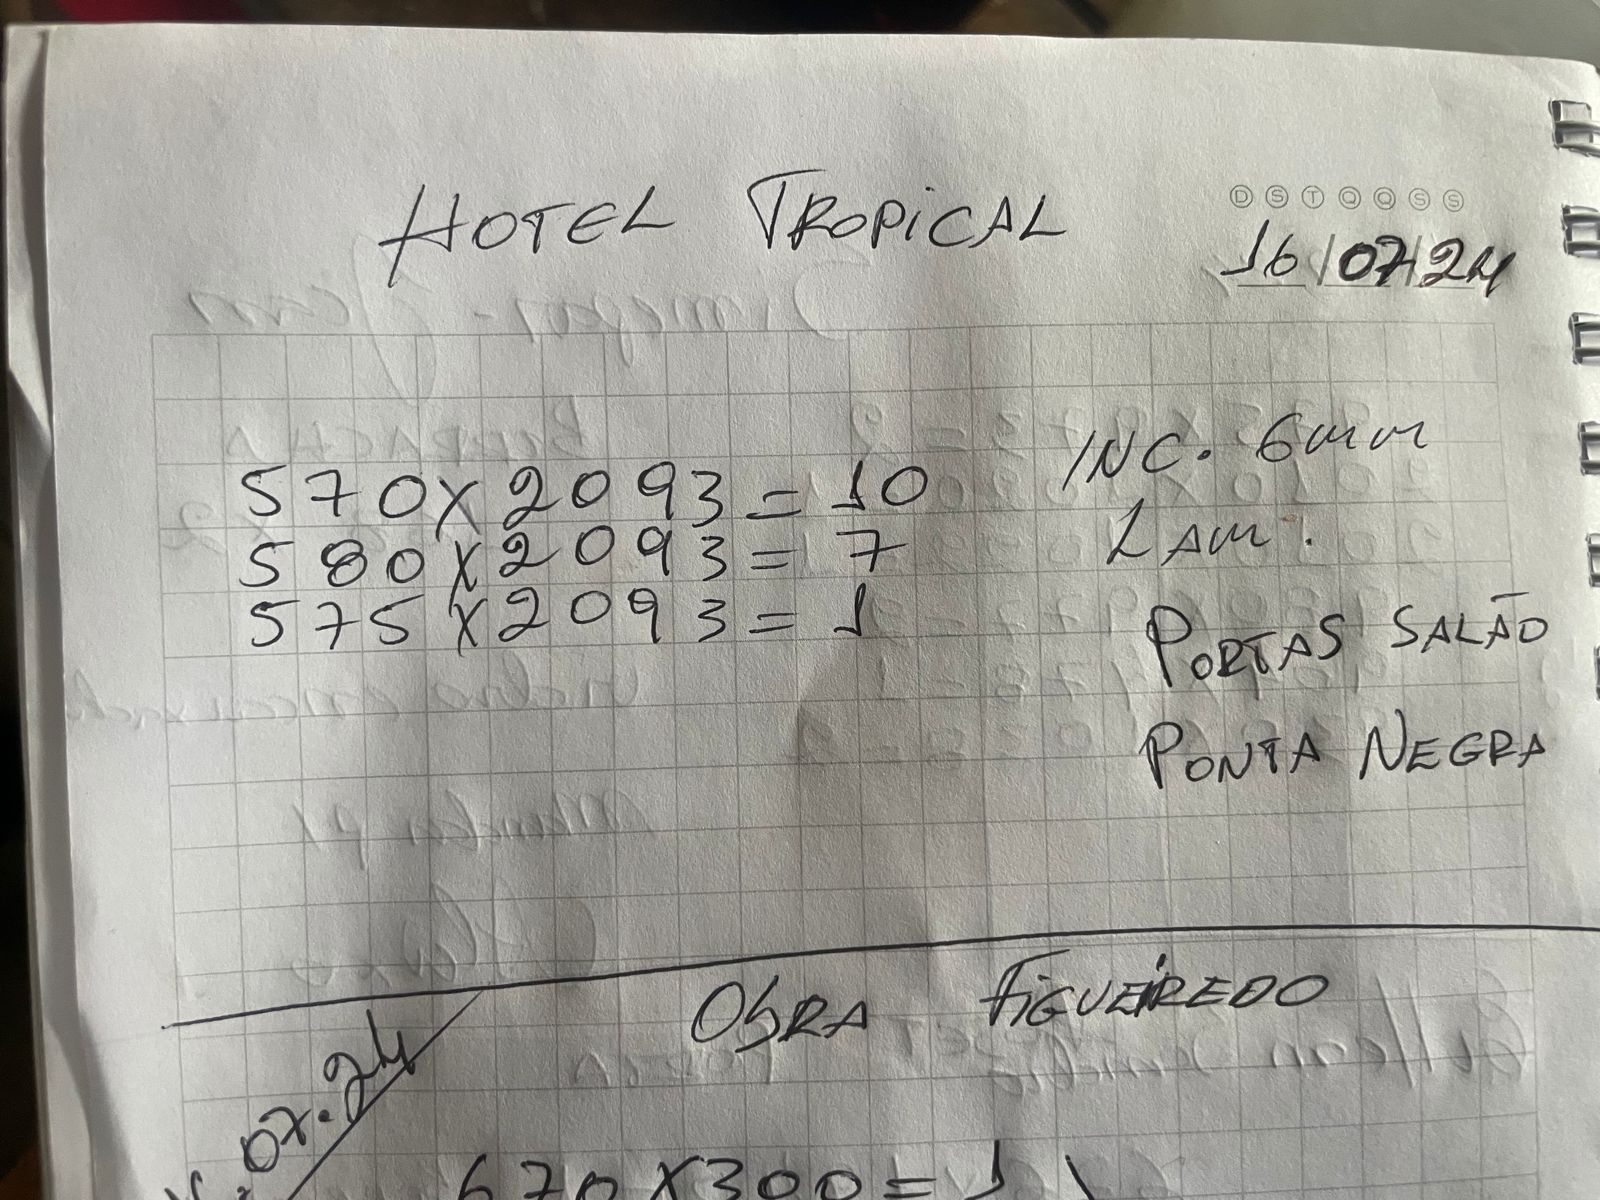 HOTEL TROPICAL
D S T Q Q S S
16/07/24
570X2093=10 INC. 6mm
580X2093=7 LAM.
575X2093=1
PORTAS SALÃO
PONTA NEGRA
OBRA FIGUEIREDO
.07.24
670X300=1